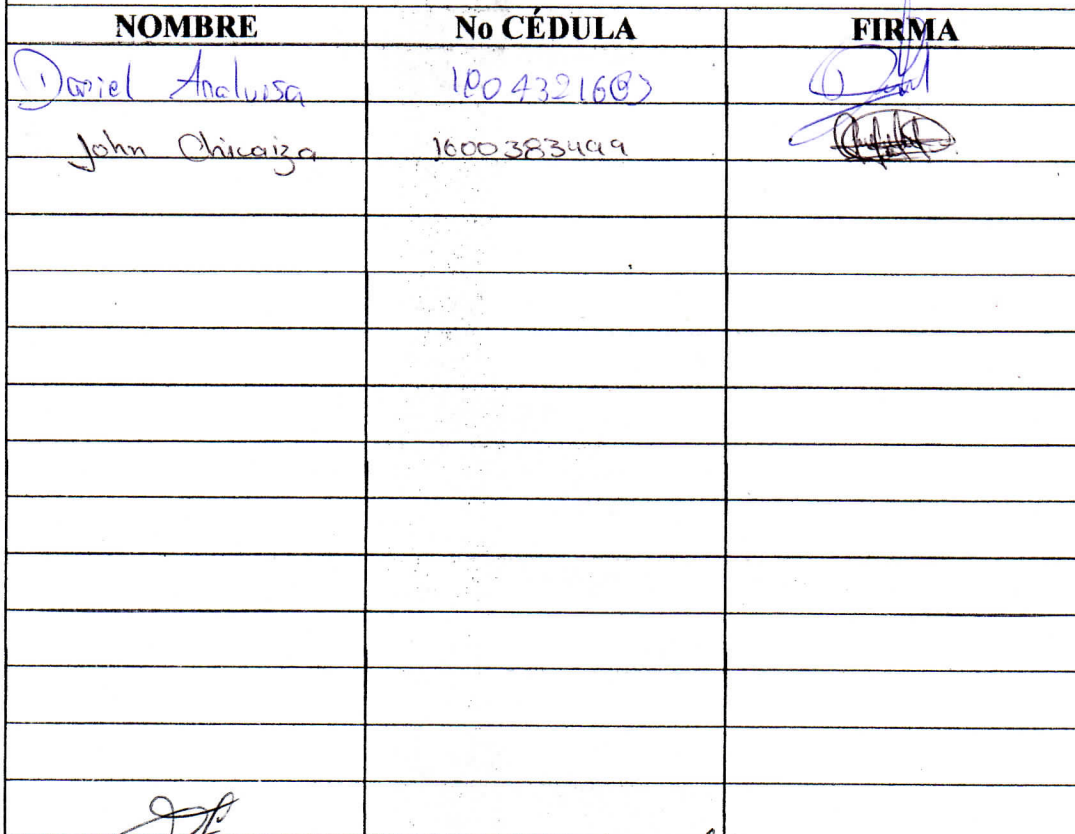 NOMBRE No CÉDULA FIRMA
Daniel Analuisa
John Chicaiza 1600383499